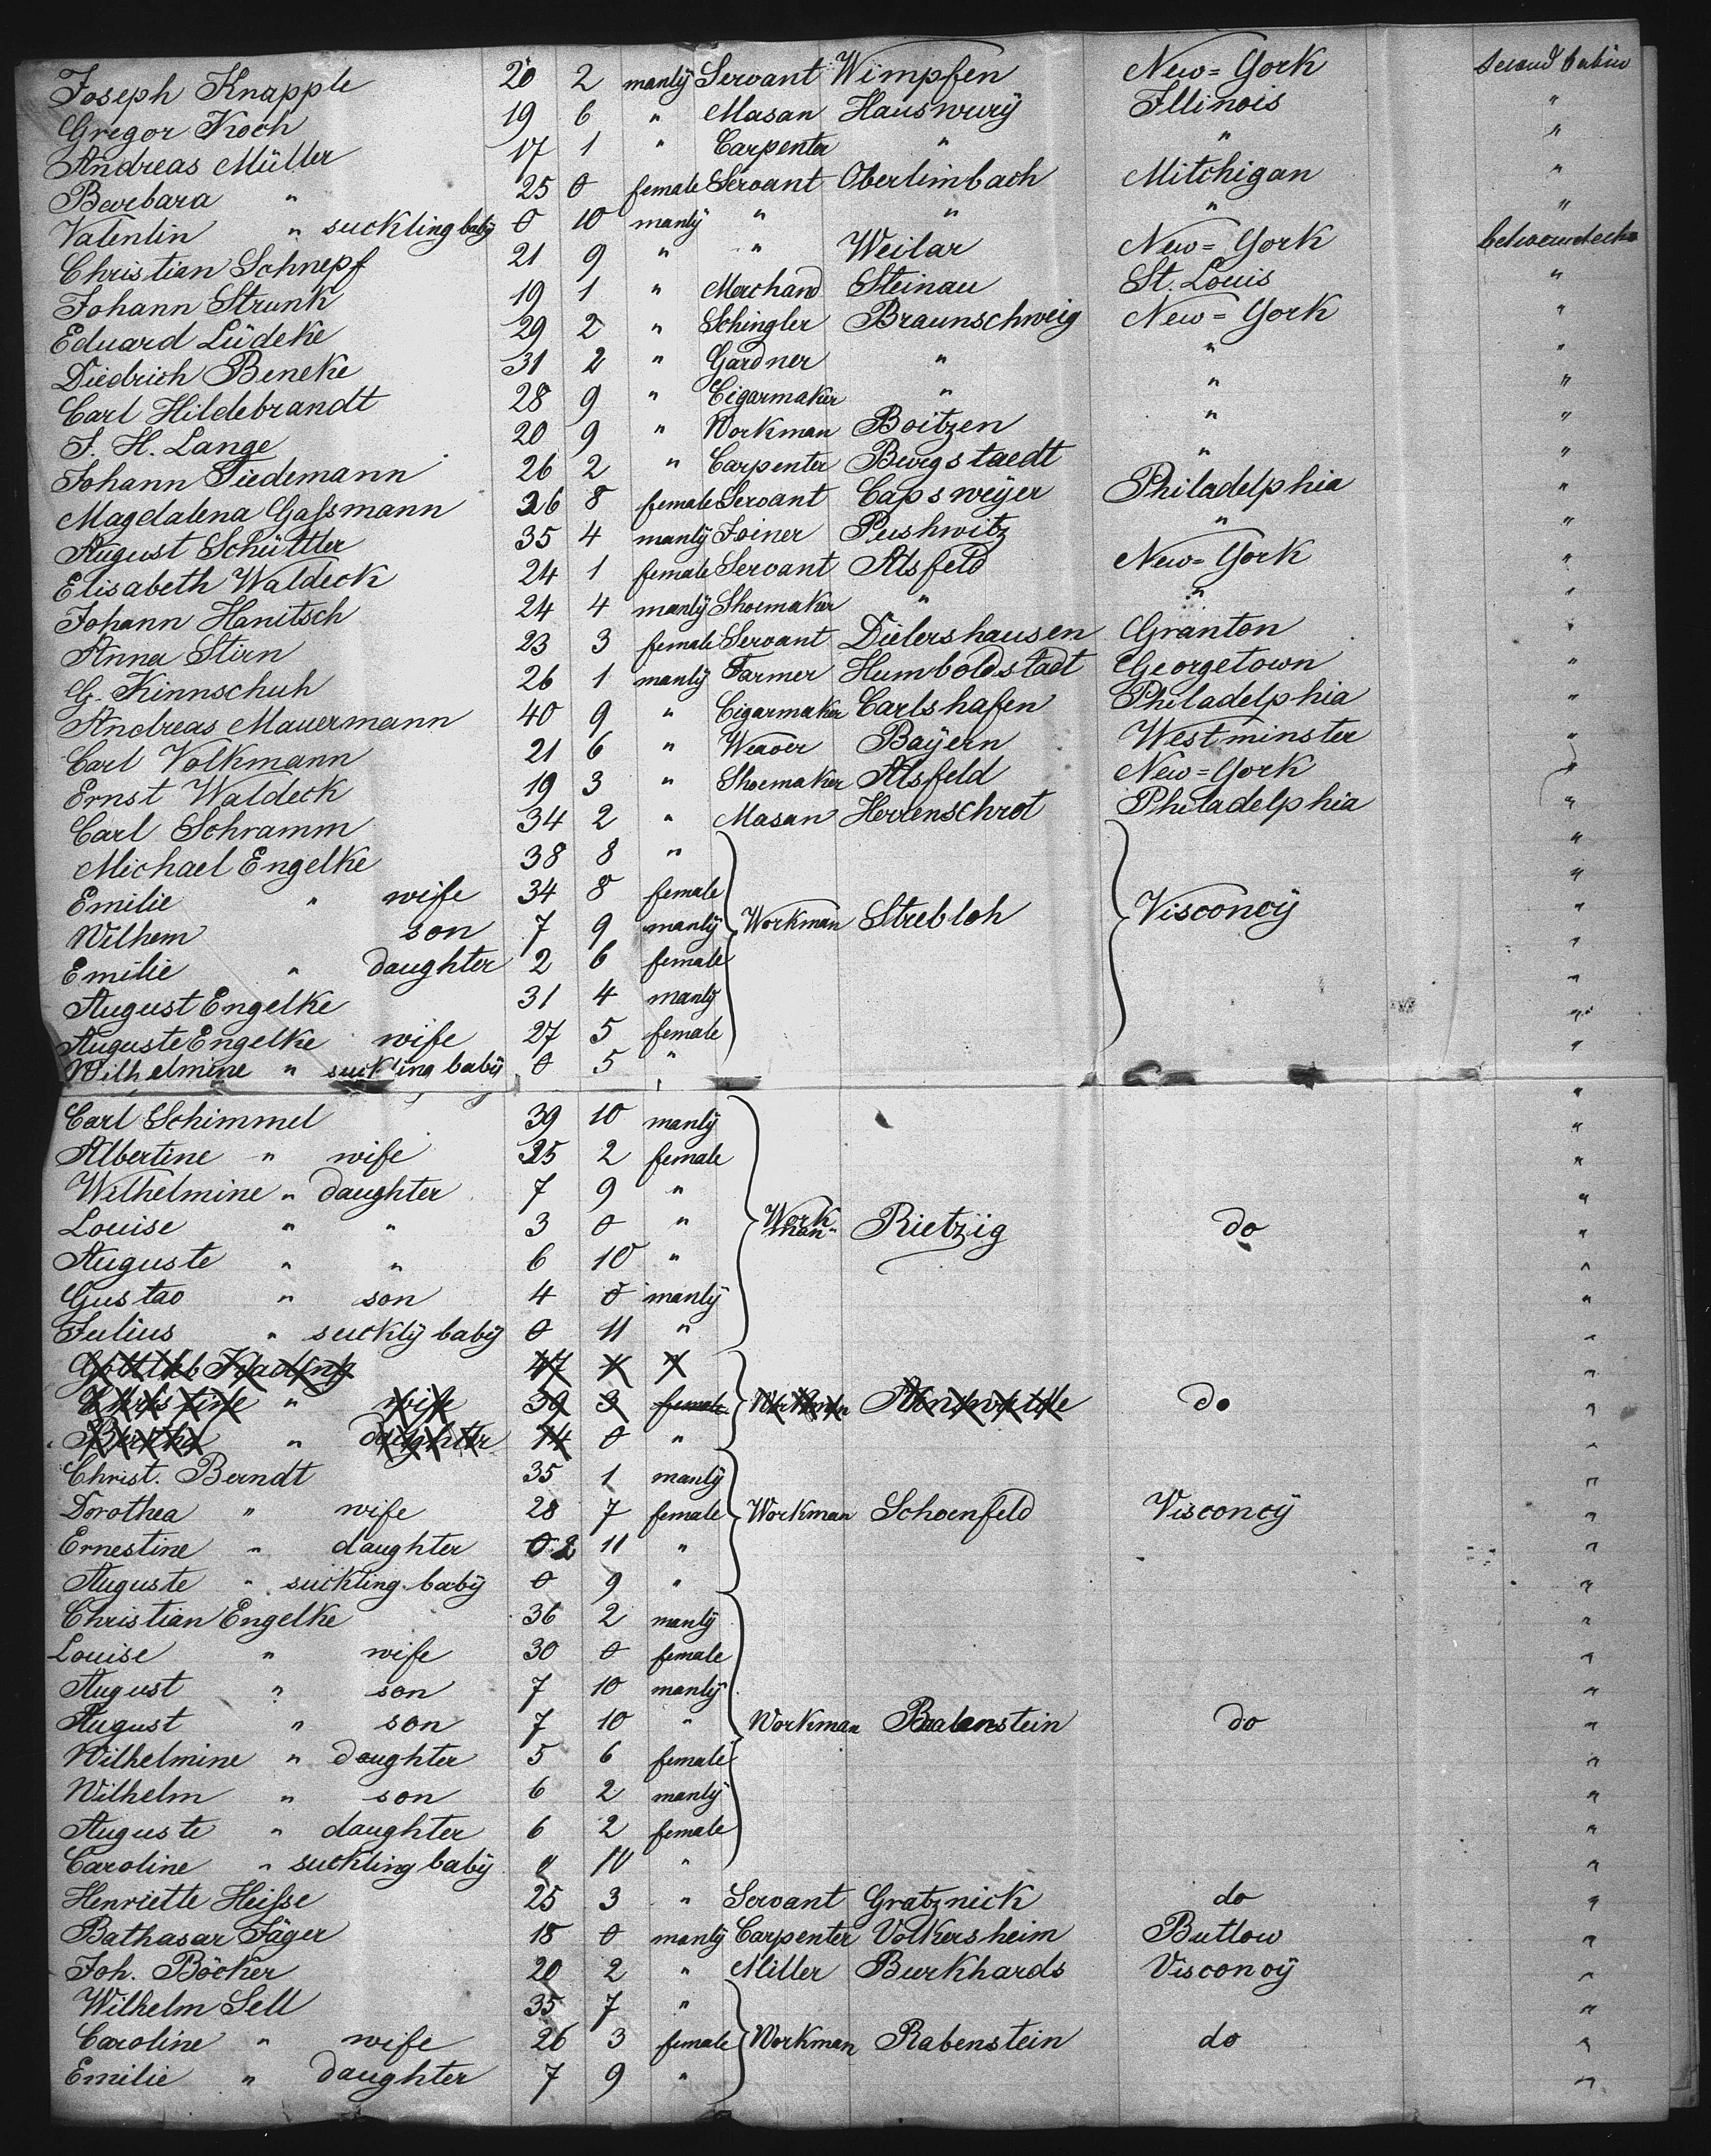 Joseph Knapple 20 2 manlÿ Servant Wimpfen New=York second Cabin
Gregor Koch 19 6 " Masan Hauswurÿ Illinois "
Andreas Müller 17 1 " Carpenter " " "
Barbara " 25 0 female Servant Oberlimbach Mitchigan "
Valentin " suckling babÿ 0 10 manlÿ " " " "
Christian Schnepf 21 9 " " Weilar New=York betweendecks
Johann Strunk 19 1 " Merchand Steinau St. Louis "
Eduard Lüdeke 29 2 " Schingler Braunschweig New=York "
Diedrich Beneke 31 2 " Gardner " " "
Carl Hildebrandt 28 9 " Cigarmaker " " "
J. H. Lange 20 9 " Workman Boitzen " "
Johann Tiedemann 26 2 " Carpenter Burgstaedt " "
Magdalena Gaſsmann 26 8 female Servant Capsweÿer Philadelphia "
August Schüttler 35 4 manlÿ Joiner Pushwitz " "
Elisabeth Waldeck 24 1 female Servant Alsfeld New=York "
Johann Hanitsch 24 4 manlÿ Shoemaker " " "
Anna Stirn 23 3 female Servant Dielershausen Granton "
G. Kinnschuh 26 1 manlÿ Farmer Humboldstadt Georgetown "
Andreas Mauermann 40 9 " Cigarmaker Carlshafen Philadelphia "
Carl Volkmann 21 6 " Weaver Baÿern Westminster "
Ernst Waldeck 19 3 " Shoemaker Alsfeld New=York "
Carl Schramm 34 2 " Masan Herrenschrot Philadelphia "
Michael Engelke 38 8 " "
Emilie " wife 34 8 female "
Wilhem son 7 9 manlÿ Workman Strebloh Visconcÿ "
Emilie " daughter 2 6 female "
August Engelke 31 4 manlÿ "
Auguste Engelke wife 27 5 female "
Wilhelmine " suckling babÿ 0 5 " "
Carl Schimmel 39 10 manlÿ "
Albertine " wife 25 2 female "
Wilhelmine " daughter 7 9 " "
Louise " " 3 0 " Workman Rietzig do "
Auguste " " 6 10 " "
Gustav " son 4 0 manlÿ "
Julius " sucklÿ babÿ 0 11 " "
Gottlieb Klading 47 "
Christine " wife 39 3 female Workman do "
Bertha " daughter 14 0 " "
Christ. Berndt 35 1 manlÿ "
Dorothea " wife 28 7 female Workman Schoenfeld Visconcÿ "
Ernestine " daughter 0 2 11 " "
Auguste " suckling babÿ 0 9 " "
Christian Engelke 36 2 manlÿ "
Louise " wife 30 0 female "
August " son 7 10 manlÿ "
August " son 7 10 " Workman Baalenstein do "
Wilhelmine " daughter 5 6 female "
Wilhelm " son 6 2 manlÿ "
Auguste " daughter 6 2 female "
Caroline " suckling babÿ 0 10 " "
Henriette Heiſse 25 3 " Servant Gratznick do "
Bathasar Jäger 18 0 manlÿ Carpenter Volkersheim Butlow "
Joh. Böcker 20 2 " Miller Burkhards Visconcÿ "
Wilhelm Sell 35 7 " "
Caroline " wife 26 3 female Workman Rabenstein do "
Emilie " daughter 7 9 " "